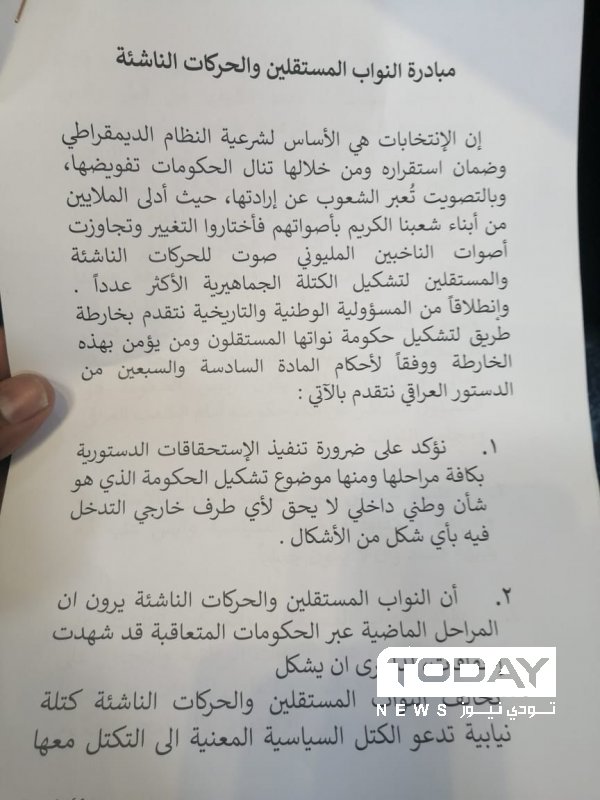 مبادرة النواب المستقلين والحركات الناشئة
إن الإنتخابات هي الأساس لشرعية النظام الديمقراطي
وضمان استقراره ومن خلالها تنال الحكومات تفويضها،
وبالتصويت تُعبر الشعوب عن إرادتها، حيث أدلى الملايين
من أبناء شعبنا الكريم بأصواتهم فأختاروا التغيير وتجاوزت
أصوات الناخبين المليوني صوت للحركات الناشئة
والمستقلين لتشكيل الكتلة الجماهيرية الأكثر عدداً .
وإنطلاقاً من المسؤولية الوطنية والتاريخية نتقدم بخارطة
طريق لتشكيل حكومة نواتها المستقلون ومن يؤمن بهذه
الخارطة ووفقاً لأحكام المادة السادسة والسبعين من
الدستور العراقي نتقدم بالآتي :
١. نؤكد على ضرورة تنفيذ الإستحقاقات الدستورية
بكافة مراحلها ومنها موضوع تشكيل الحكومة الذي هو
شأن وطني داخلي لا يحق لأي طرف خارجي التدخل
فيه بأي شكل من الأشكال .
٢. أن النواب المستقلين والحركات الناشئة يرون ان
المراحل الماضية عبر الحكومات المتعاقبة قد شهدت
ان يشكل
النواب المستقلين والحركات الناشئة كتلة
نيابية تدعو الكتل السياسية المعنية الى التكتل معها
TODAY
NEWS تودي نيوز